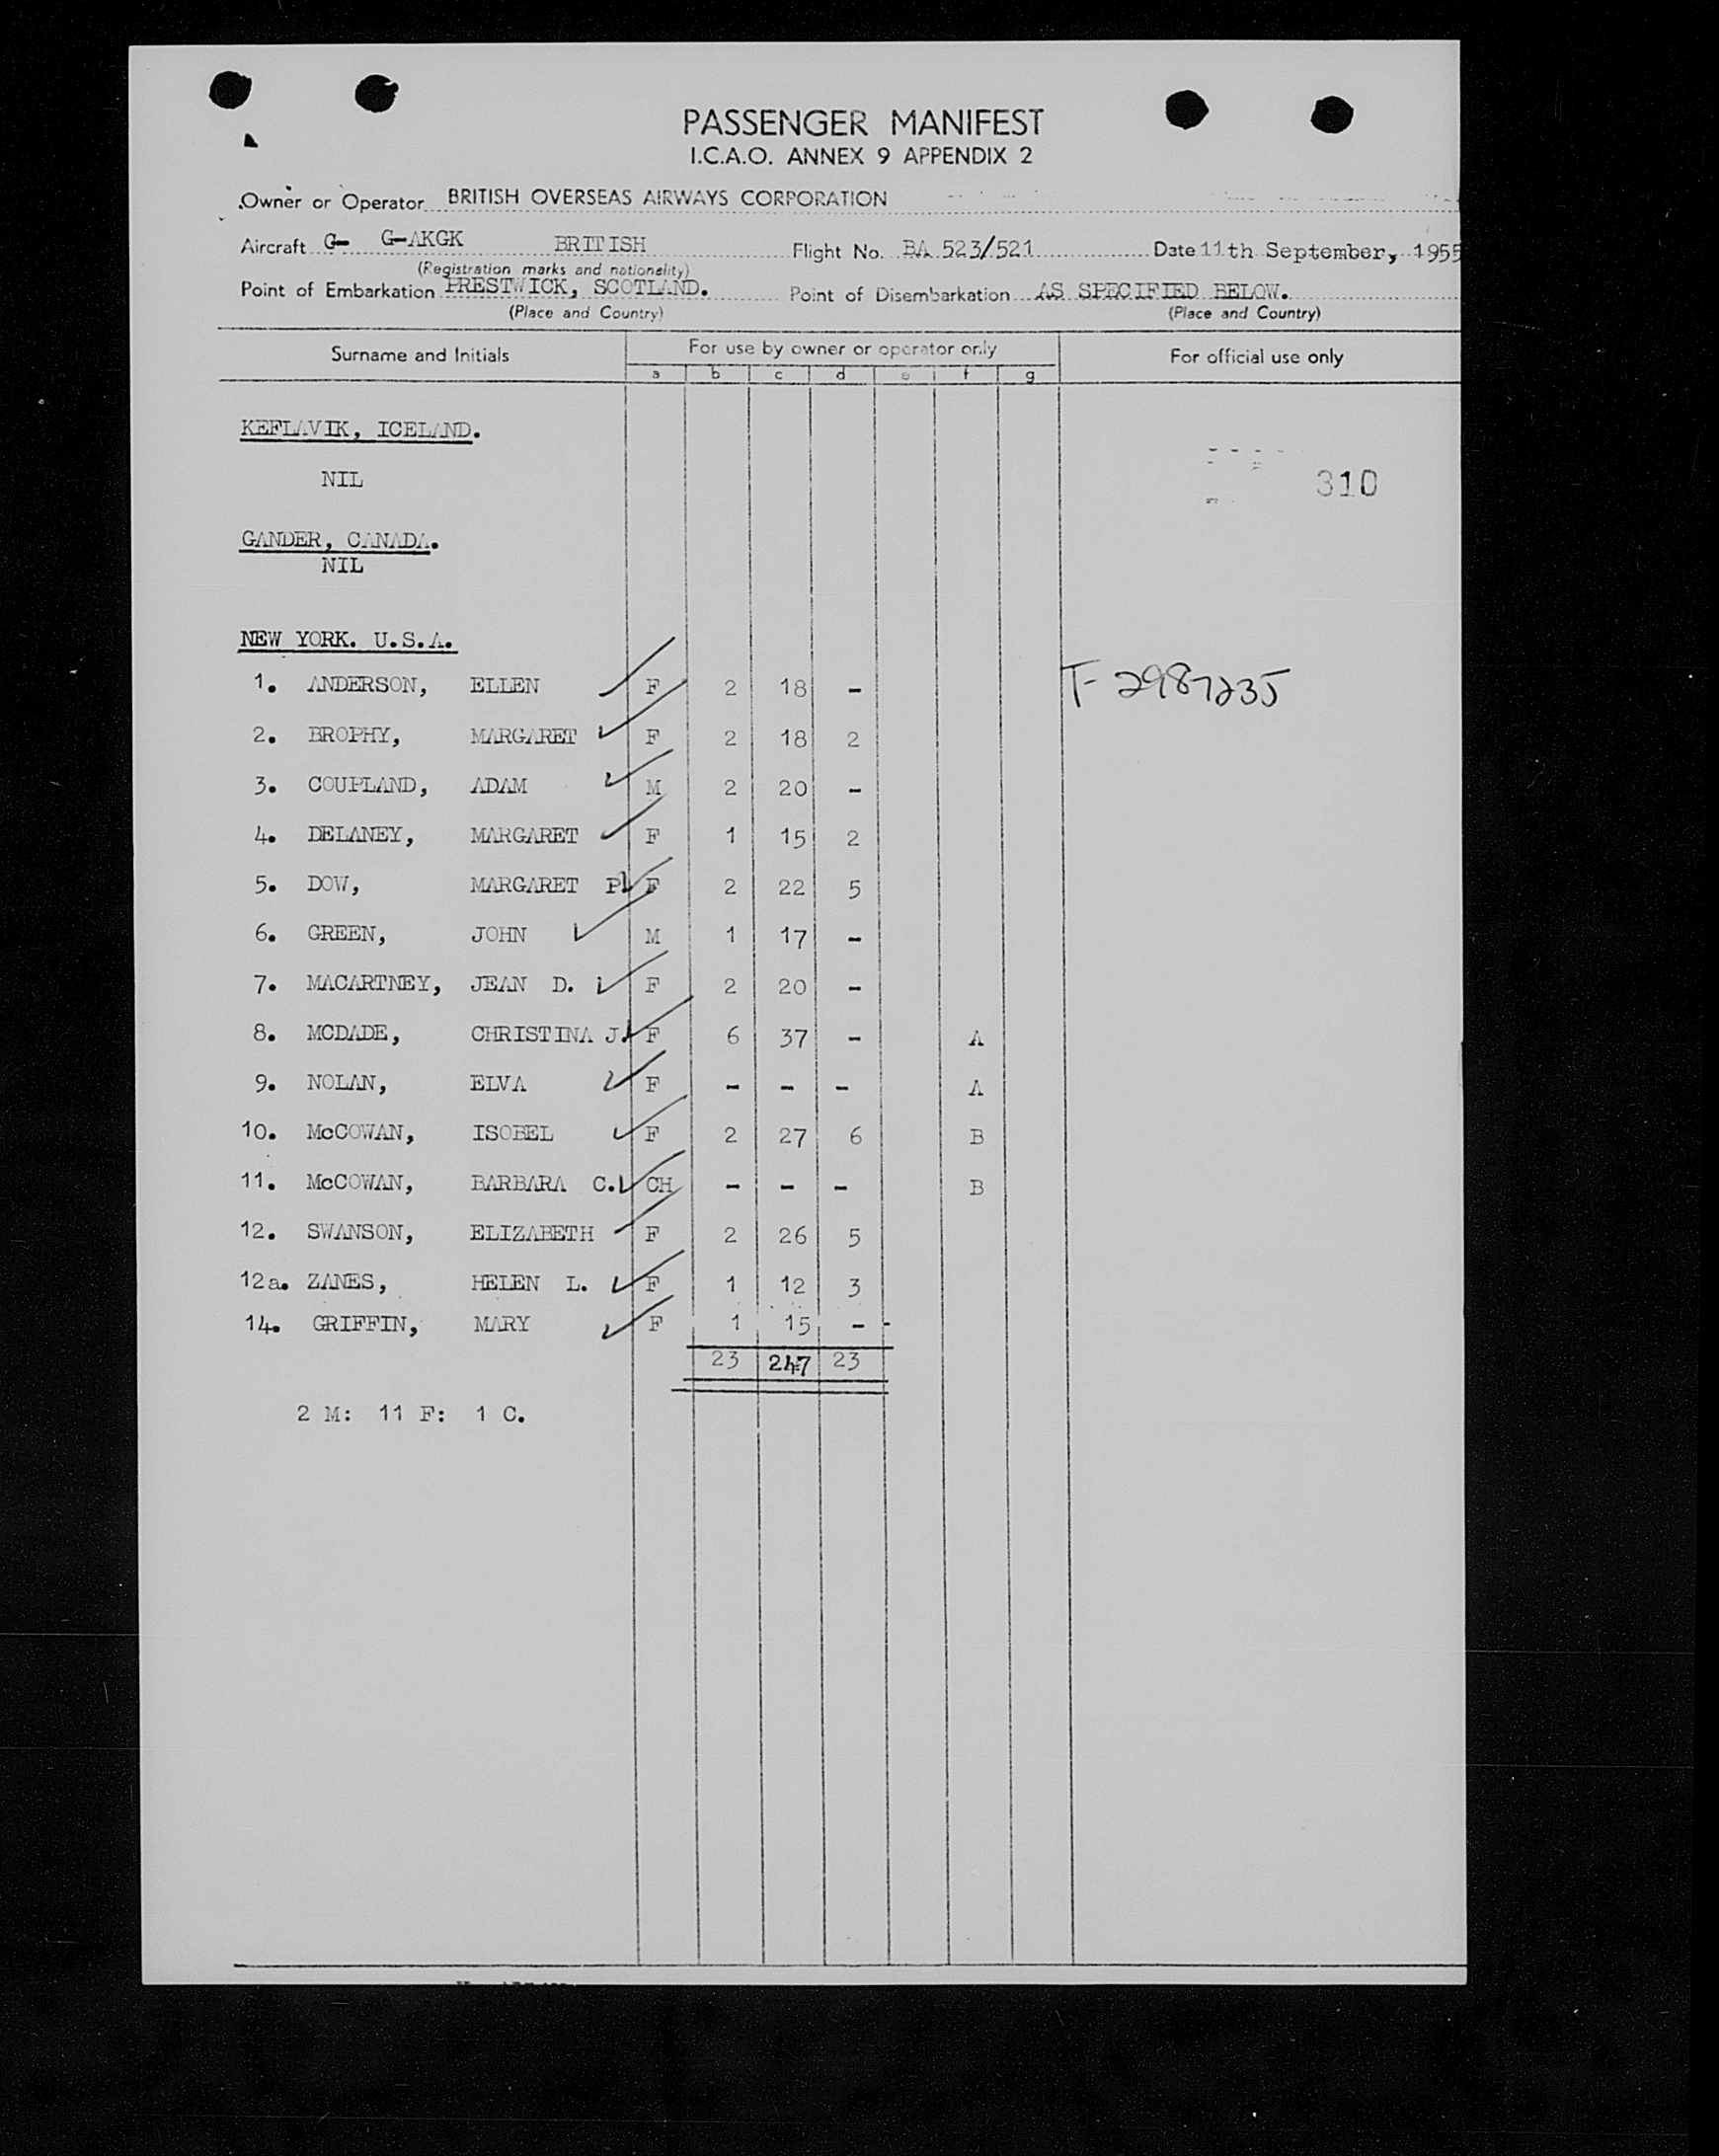 PASSENGER MANIFEST
I.C.A.O. ANNEX 9 APPENDIX 2
Owner or Operator BRITISH OVERSEAS AIRWAYS CORPORATION
Aircraft G- G-AKGK BRITISH Flight No. BA 523/521 Date 11th September, 1955
(Registration marks and nationality)
Point of Embarkation PRESTWICK, SCOTLAND. Point of Disembarkation AS SPECIFIED BELOW.
(Place and Country) (Place and Country)
Surname and Initials For use by owner or operator only For official use only
a b c d e f g
KEFLAVIK, ICELAND.
NIL 310
GANDER, CANADA.
NIL
NEW YORK. U.S.A.
1. ANDERSON, ELLEN F 2 18 - T-2987235
2. BROPHY, MARGARET F 2 18 2
3. COUPLAND, ADAM M 2 20 -
4. DELANEY, MARGARET F 1 15 2
5. DOW, MARGARET P F 2 22 5
6. GREEN, JOHN M 1 17 -
7. MACARTNEY, JEAN D. F 2 20 -
8. MCDADE, CHRISTINA J. F 6 37 - A
9. NOLAN, ELVA F - - - A
10. McCOWAN, ISOBEL F 2 27 6 B
11. McCOWAN, BARBARA C. CH - - - B
12. SWANSON, ELIZABETH F 2 26 5
12a. ZANES, HELEN L. F 1 12 3
14. GRIFFIN, MARY F 1 15 - -
23 247 23
2 M: 11 F: 1 C.